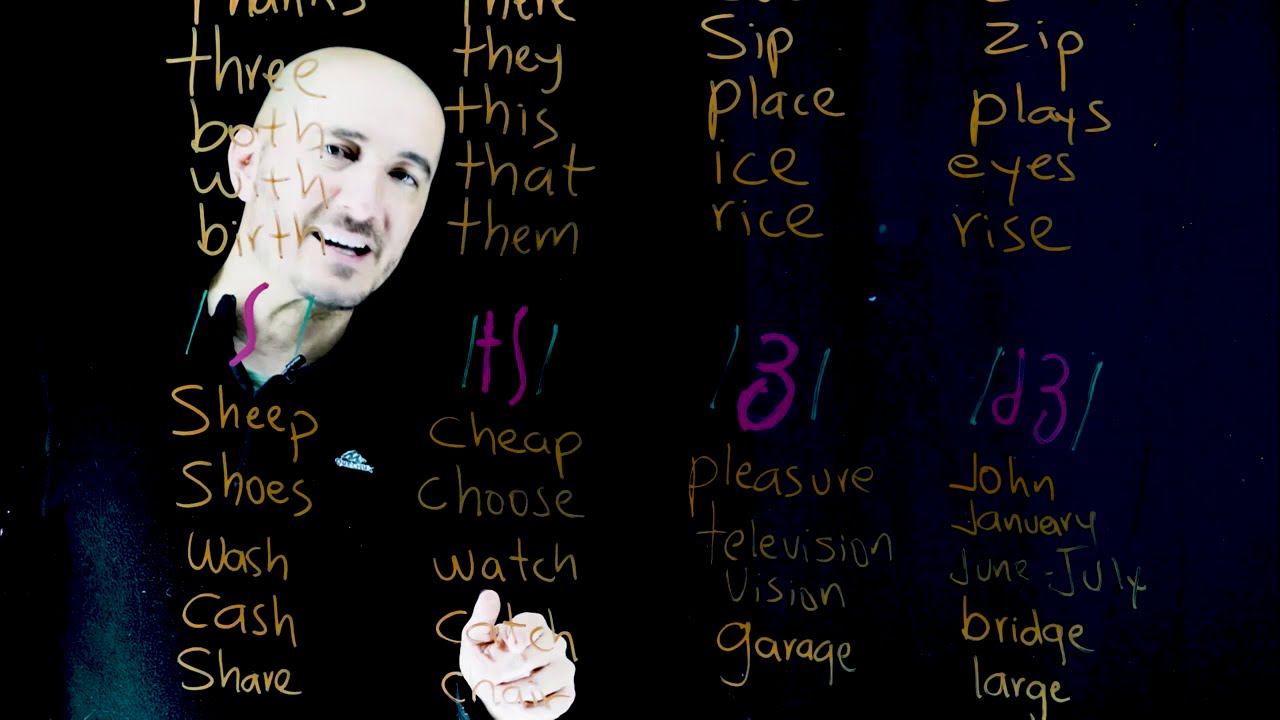 Thanks there
three they Sip zip
both this place plays
with that ice eyes
birth them rice rise
/ʃ/ /tʃ/ /ʒ/ /dʒ/
Sheep cheap pleasure John
Shoes choose television January
Wash watch vision June - July
Cash catch garage bridge
Share chair large